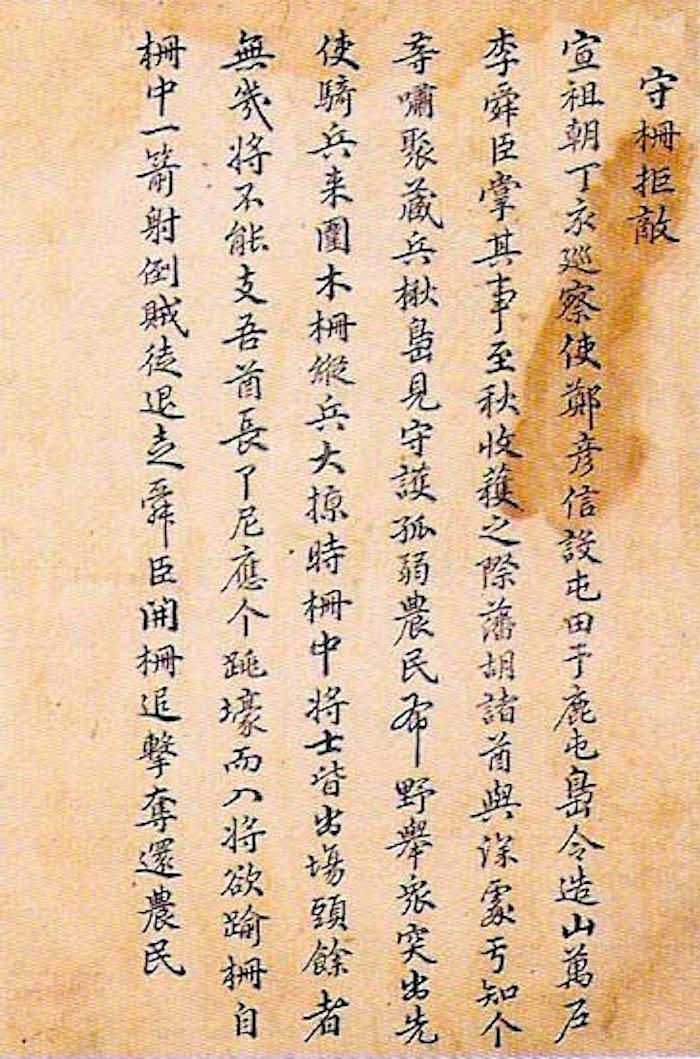 守柵拒敵
宣祖朝丁亥巡察使鄭彦信設屯田于鹿屯島令造山萬戶
李舜臣掌其事至秋收穫之際藩胡諸酋與深處亏知介
等嘯聚藏兵楸島見守護孤弱農民布野舉衆突出先
使騎兵来圍木柵縱兵大掠時柵中將士皆出場頭餘者
無幾將不能支吾酋長了尼應个跳壕而入將欲踰柵自
柵中一箭射倒賊徒退走舜臣開柵追擊奪還農民